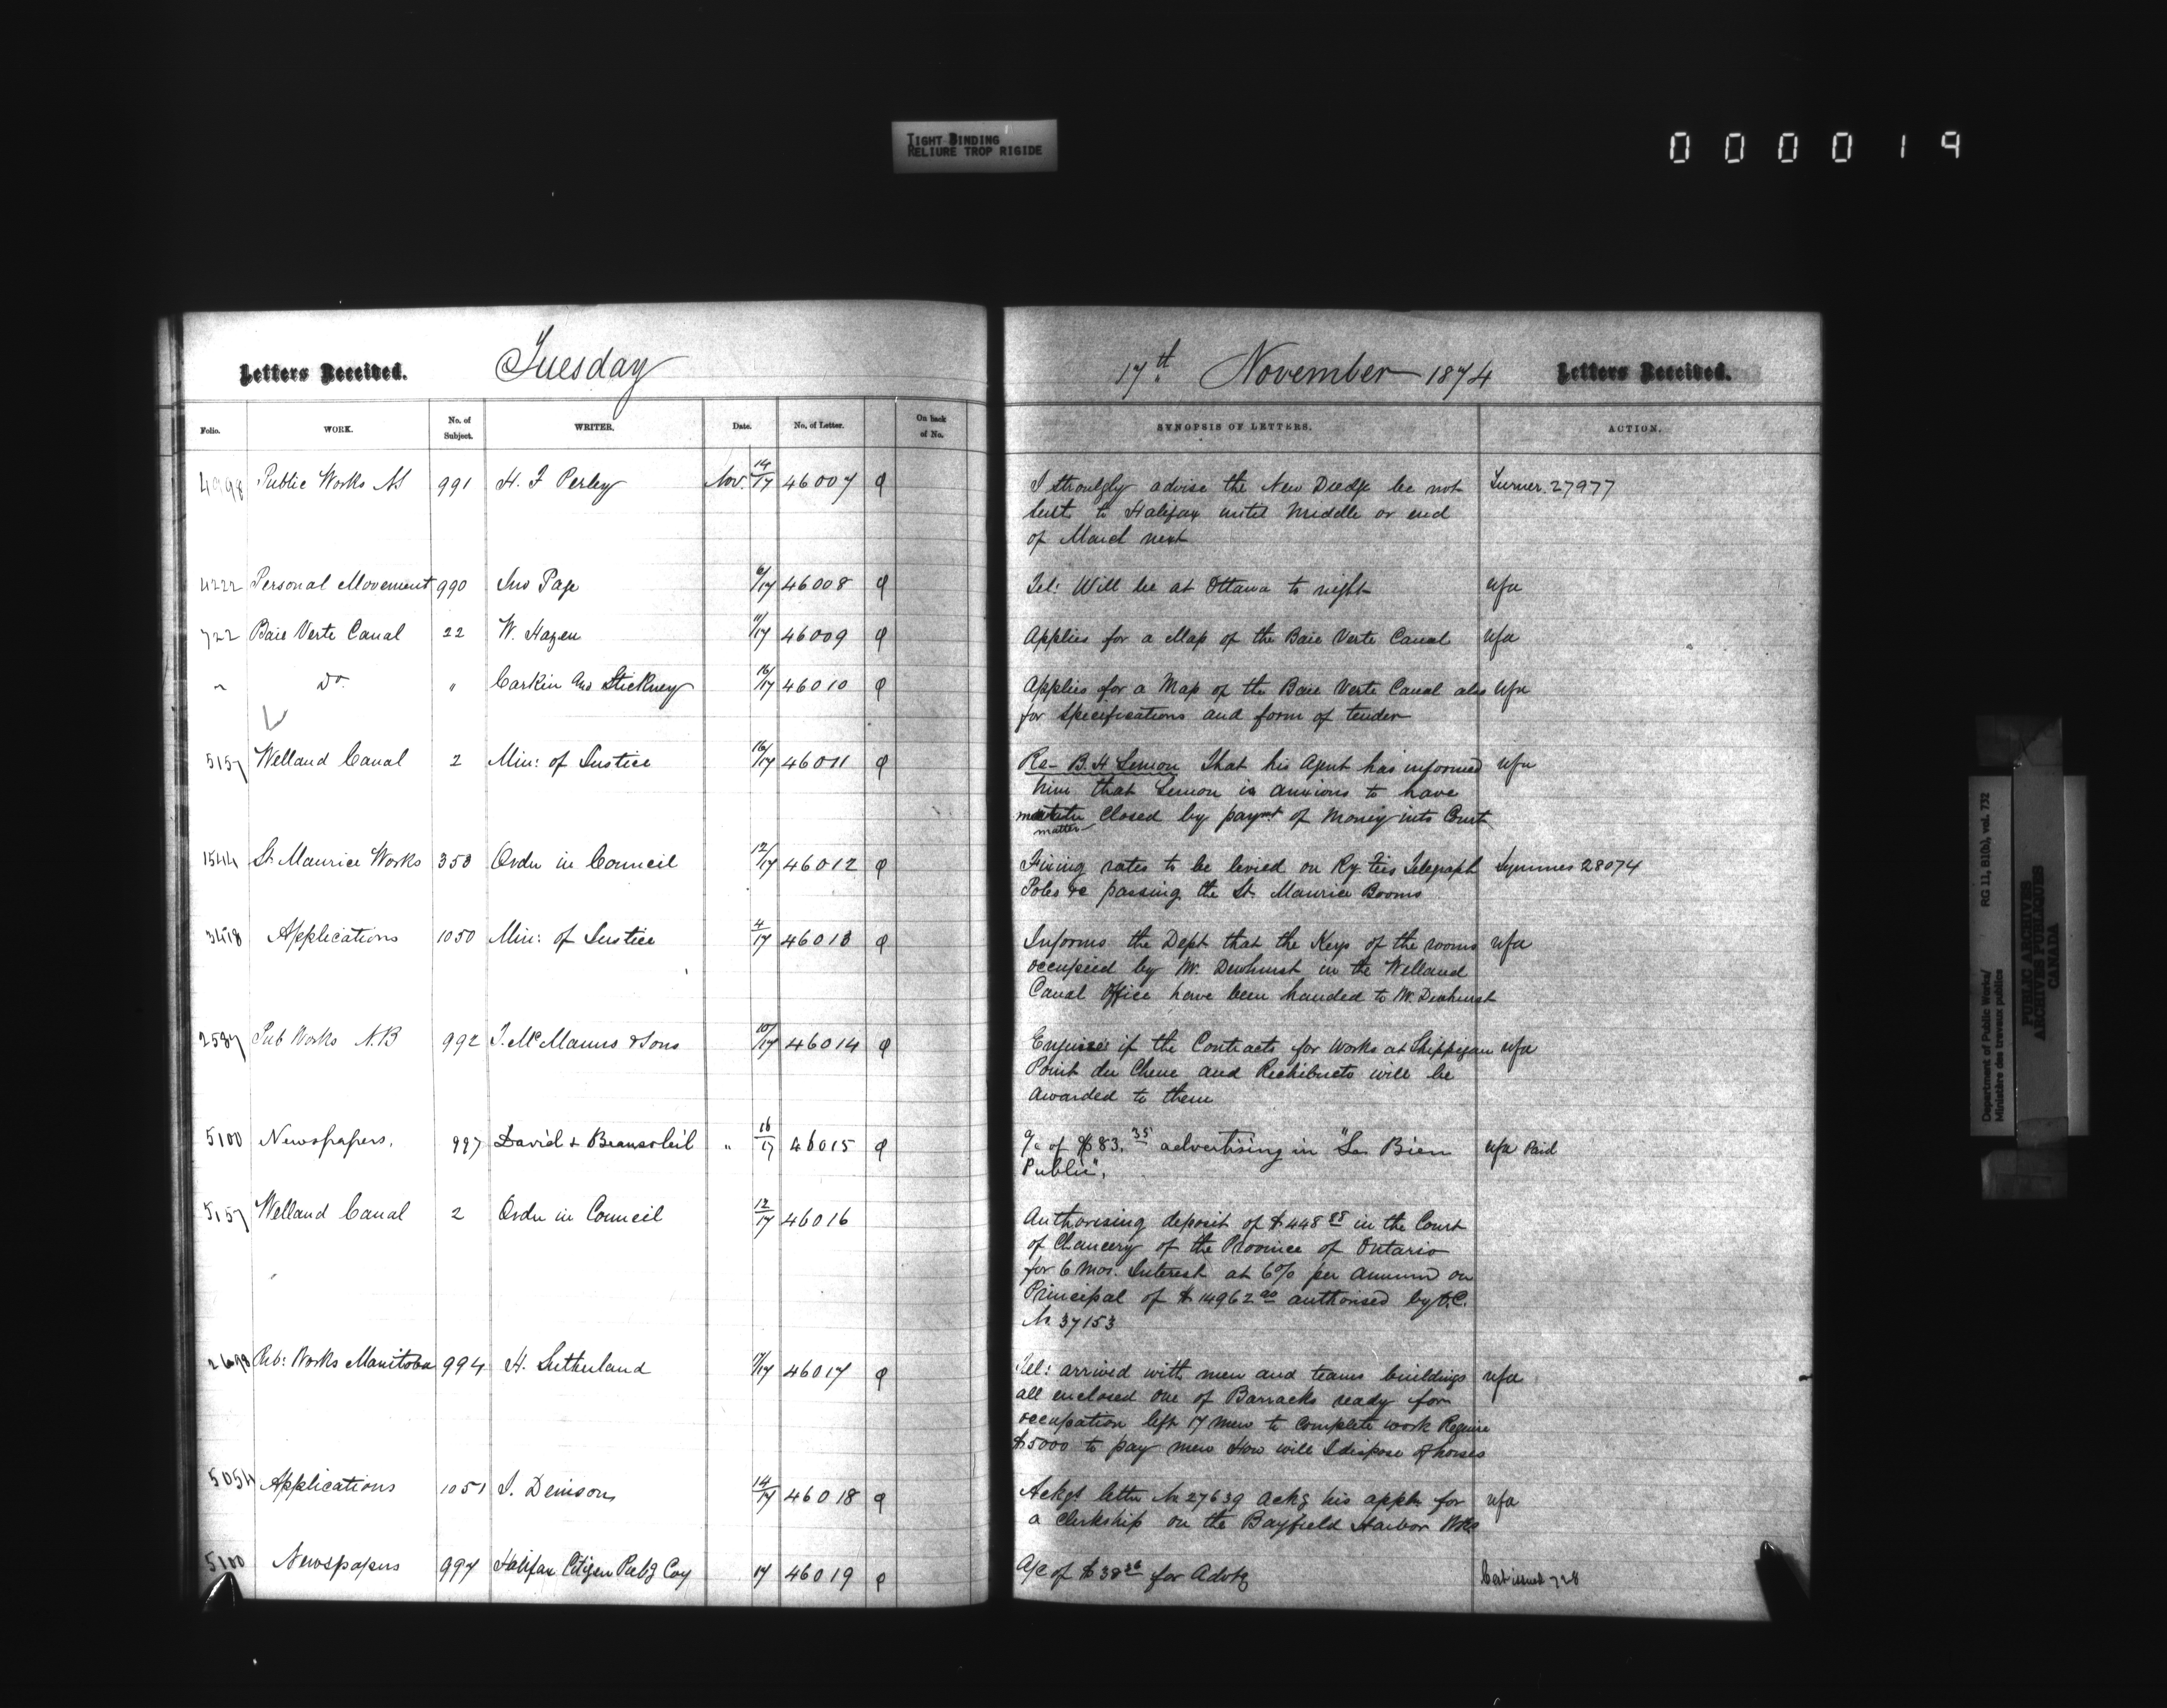 TIGHT BINDING
RELIURE TROP RIGIDE
000019
Letters Received. Tuesday
17th November 1874 Letters Received.
Folio. WORK. No. of Subject. WRITER. Date. No. of Letter. On back of No.
SYNOPSIS OF LETTERS. ACTION.
4998 Public Works NS 991 H. F Perley Nov. 14/17 46007
I strongly advise the New Dredge be not Turner. 27977
sent to Halifax until middle or end
of March next
4222 Personal Movement 990 Jno Page 6/17 46008
Tel: Will be at Ottawa to night nfa
722 Baie Verte Canal 22 W. Hazen 11/17 46009
Applies for a Map of the Baie Verte Canal nfa
" Do. " Carkin and Stickney 16/17 46010
Applies for a Map of the Baie Verte Canal also nfa
for specifications and form of tender
5157 Welland Canal 2 Min: of Justice 16/17 46011
Re- B. H Lemon That his Agent has informed nfa
him that Lemon is anxious to have
matter closed by paymt of money into Court
matter
1544 St. Maurice Works 353 Order in Council 12/17 46012
Fixing rates to be levied on Ry. ties Telegraph Symmes 28074
Poles &c passing the St. Maurice Booms
3418 Applications 1050 Min: of Justice 4/17 46013
Informs the Dept that the Keys of the rooms nfa
occupied by W. Dewhurst in the Welland
Canal Office have been handed to W. Dewhurst
2587 Pub Works N.B 992 J. McManus & Sons 10/17 46014
Enquires if the Contracts for Works at Shippegan nfa
Point du Chene and Richibucto will be
awarded to them
5100 Newspapers. 997 David & Beausoleil " 16/17 46015
a/c of $83.35 advertising in "Le Bien nfa Paid
Public".
5157 Welland Canal 2 Order in Council 12/17 46016
Authorising deposit of $448 88 in the Court
of Chancery of the Province of Ontario
for 6 mos. Interest at 6% per annum on
Principal of $14962 00 authorised by O.C.
No 37153
2698 Pub: Works Manitoba 994 H. Sutherland 17 46017
Tel: arrived with men and teams buildings nfa
all enclosed one of Barracks ready for
occupation left 17 men to complete work Require
$5000 to pay men How will I dispose of horses
5054 Applications 1051 J. Denison 14/17 46018
Ackgs letter No 27639 ackg his appn for nfa
a Clerkship on the Bayfield Harbor Wks
5100 Newspapers 997 Halifax Citizen Pubg Coy 17 46019
A/c of $38 36 for Advtg Cert issued 728
Department of Public Works/
Ministère des travaux publics
RG 11, B1(b), vol. 732
PUBLIC ARCHIVES
ARCHIVES PUBLIQUES
CANADA